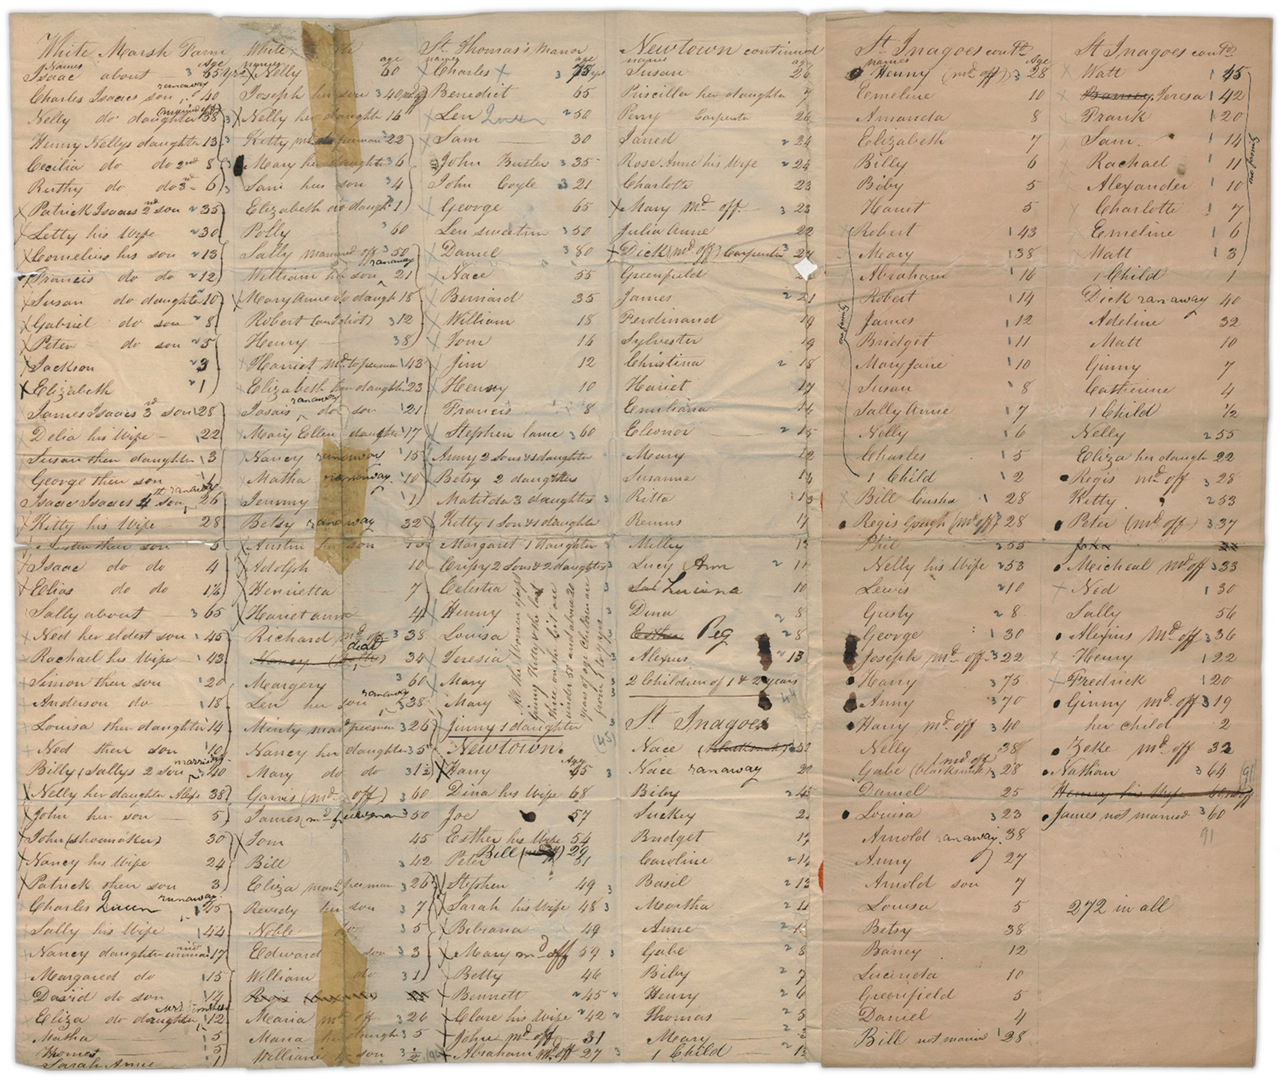 White Marsh Farm
Names Age
Isaac about 65 yrs
Charles Isaacs son runaway 40
Nelly do daughter 38
Henny Nellys daughter 13
Cecilia do do 2nd 8
Ruthy do do 3rd 6
Patrick Isaacs 2nd son 35
Letty his Wife 30
Cornelius his son 13
Francis do do 12
Susan do daughter 10
Gabriel do son 8
Peter do son 5
Jackson 3
Elizabeth 1
James Isaacs 3rd son 28
Delia his Wife 22
Susan their daughter 3
George their son
Isaac Isaacs 4th son runaway 26
Kitty his Wife 28
Austin their son 5
Isaac do do 4
Elias do do 1½
Sally about 65
Ned her eldest son 45
Rachael his Wife 43
Simon their son 20
Anderson do 18
Louisa their daughter 14
Ned their son 10
Billy (Sallys 2 son) married 40
Nelly her daughter 38
John her son 5
John (shoemaker) 30
Nancy his Wife 24
Patrick their son 3
Charles Queen runaway 45
Sally his Wife 44
Nancy daughter 17
Margaret do 15
David do son 14
Eliza do daughter 12
Martha 5
Thomas 5
Sarah Anne 1
White
names age
Nelly 60
Joseph her son 40
Nelly her daughter 16
Kitty 22
Mary her daughter 6
Sam her son 4
Elizabeth do daugh 1
Polly 60
Sally married off 50
William her son runaway 21
Mary Anne do daugh 18
Robert 12
Henry 38
Harriet 43
Elizabeth her daugh 23
Isaiah do son runaway 21
Mary Ellen daughter 17
Nancy runaway 15
Martha runaway 10
Jemmy 1
Betsy runaway 32
Austin her son
Adolph 10
Henrietta 7
Harietann 4
Richard md off 38
dead
Nancy 34
Margery 60
Len her son runaway 38
Minty 26
Nancy her daughter 5
Mary do do 3½
Garvis (md off) 60
James 50
Tom 45
Bill 42
Eliza 26
Reverdy her son 7
Noble do 5
Edward son 3
William do 1
Maria md off 26
Maria her daugh 5
William son ½
St. Thomas's Manor
names age
Charles 75 yrs
Benedict 65
Len Queen 50
Sam 30
John Butler 35
John Coyle 21
George 65
Len Sweeton 50
Daniel 80
Nace 55
Bernard 35
William 18
Tom 14
Jim 12
Henny 10
Francis 8
Stephen lame 60
Anny 2 sons & daughter
Betsy 2 daughters
Matilda 3 daughters
Kitty 1 Son & 1 daughter
Margaret 1 daughter
Crissy 2 Sons & 2 daughters
Celestia
Henny
Louisa
Teresia
Mary
Mary
Jinny 1 daughter
All the women except
Jinny Kitty & the last
three on the list are
under 35 and above 20
years of age Children are
from 1 to 7 yrs
Newtown
Age
Harry 65
Dina his Wife 68
Joe 57
Esther his Wife 54
Bill 29
Peter 61
Stephen 49
Sarah his Wife 48
Bibiana 49
Mary md off 59
Betty 46
Bennett 45
Clare his Wife 42
John md off 31
Abraham md off 27
Newtown continued
names age
Susan 26
Priscilla her daughter 7
Perry Carpenter 26
Jared 24
Rose Anne his Wife 24
Charlotte 23
Mary md off 23
Julia Anne 22
Dick (md off) Carpenter 24
Greenfield
James 21
Ferdinand 19
Sylvester 19
Christina 18
Hariet 17
Emiliana 14
Eleonor 15
Mary 12
Susanna 14
Ritta 13
Remus 17
Milly 13
Lucy Ann 11
Luciena 10
Dina 8
Esther Peg 8
Alexius 13
2 Children of 1 & 2 years
St Inagoes
Nace (blacksmith) 51
Nace runaway 20
Biby 45
Suckey 21
Bridget 17
Caroline 14
Basil 13
Martha 11
Anne 10
Gabe 8
Biby 7
Henry 6
Thomas 5
Mary 3
1 Child 1½
St Inagoes contd
names Age
Henny (md off) 28
Emeline 10
Amanda 8
Elizabeth 7
Billy 6
Biby 5
Hariet 5
one family
Robert 43
Mary 38
Abraham 16
Robert 14
James 12
Bridget 11
Mary Jane 10
Susan 8
Sally Anne 7
Nelly 6
Charles 5
1 Child 2
Bill Cush 28
Regis Gough (md off) 28
Phil 55
Nelly his Wife 53
Lewis 10
Gusty 8
George 30
Joseph md off 22
Harry 75
Anny 70
Harry md off 40
Nelly 38
Gabe (blacksmith) md off 28
Daniel 25
Louisa 23
Arnold runaway 38
Anny 27
Arnold son 7
Louisa 5
Betsy 38
Baney 12
Lucinda 10
Greenfield 5
Daniel 4
Bill not marrd 28
St Inagoes contd
Watt 45
Teresa 42
Frank 20
Sam 14
Rachael 11
Alexander 10
Charlotte 7
Emeline 6
Watt 3
1 Child 1
one family
Dick ranaway 40
Adeline 32
Matt 10
Ginny 7
Catherine 4
1 Child ½
Nelly 55
Eliza her daugh 22
Regis md off 28
Kitty 53
Peter (md off) 37
John
Meicheal md off 33
Ned 30
Sally 56
Alexius Md off 36
Henny 22
Fredrick 20
Ginny md off 19
her child 2
Zeke md off 32
Nathan 64
Henny his Wife
James not married 60
91
91
272 in all